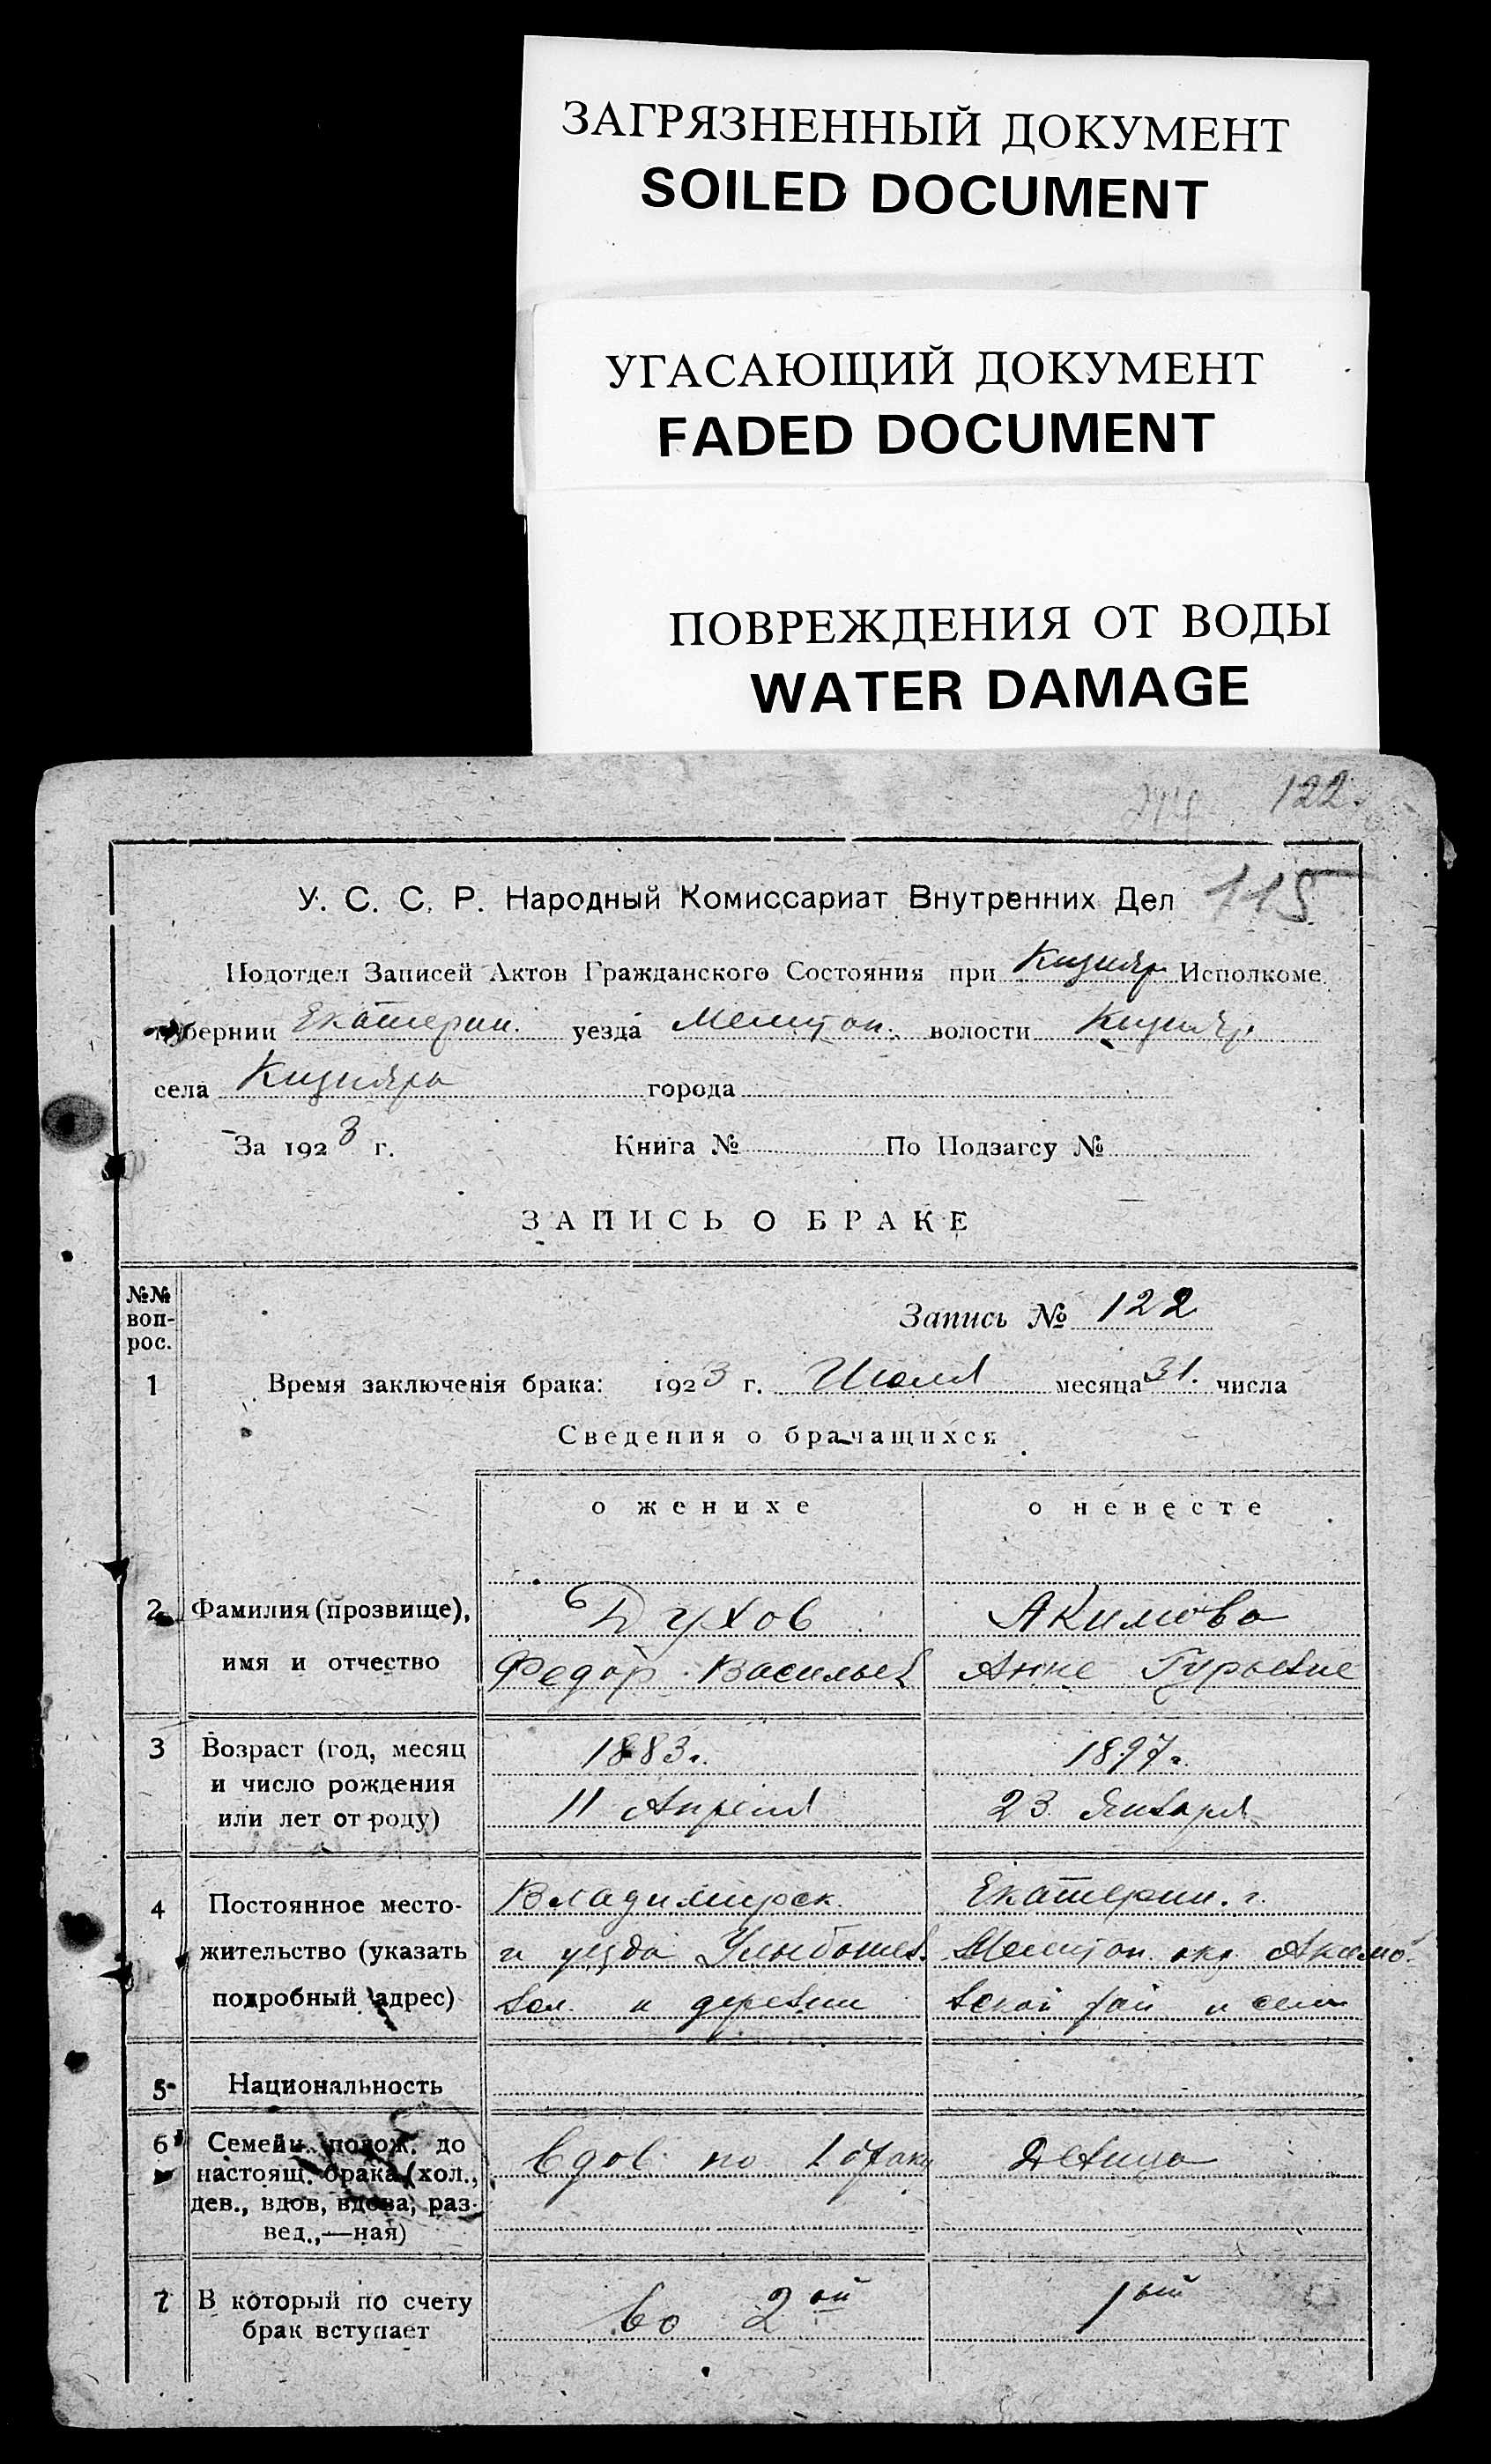 ЗАГРЯЗНЕННЫЙ ДОКУМЕНТ
SOILED DOCUMENT
УГАСАЮЩИЙ ДОКУМЕНТ
FADED DOCUMENT
ПОВРЕЖДЕНИЯ ОТ ВОДЫ
WATER DAMAGE
122.
У. С. С. Р. Народный Комиссариат Внутренних Дел 115
Подотдел Записей Актов Гражданского Состояния при Кизияр Исполкоме
губернии Екатерин. уезда Мелитоп. волости Кизияр.
села Кизияры города
За 1923 г. Книга № По Подзагсу №
ЗАПИСЬ О БРАКЕ
№№ воп-рос.
Запись № 122
1 Время заключенія брака: 1923 г. Июля месяца 31. числа
Сведения о брачащихся
о женихе о невесте
2 Фамилия (прозвище), Духов Акимова
имя и отчество Федор Васильев Анне Гурьевне
3 Возраст (год, месяц 1883г. 1897г.
и число рождения
или лет от роду) 11 Апреля 23 Января
4 Постоянное место- Владимирск. Екатерин. г.
жительство (указать и уезда Улыбышев. Мелитоп. окр. Акимо-
подробный адрес) вол. и деревни вской рай и села
5 Национальность
6 Семейн. полож. до
настоящ. брака (хол., вдов. по 1 браку Девица
дев., вдов, вдова, раз-
вед.,—ная)
7 В который по счету
брак вступает во 2ой 1ый